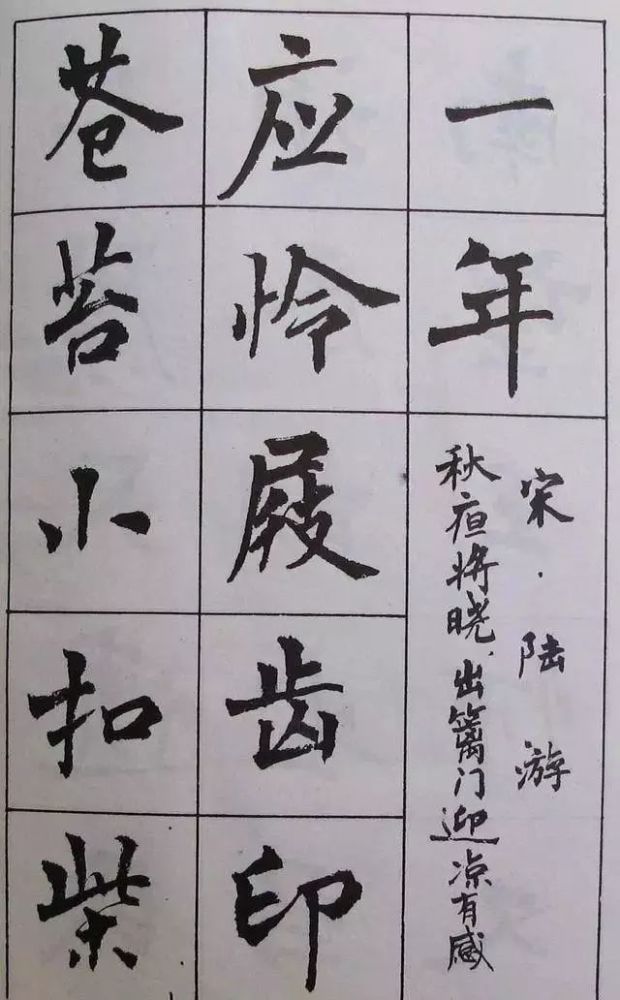 一年
宋·陆游
秋将晓,出篱门迎凉有感
应怜屐齿印
苍苔小扣柴